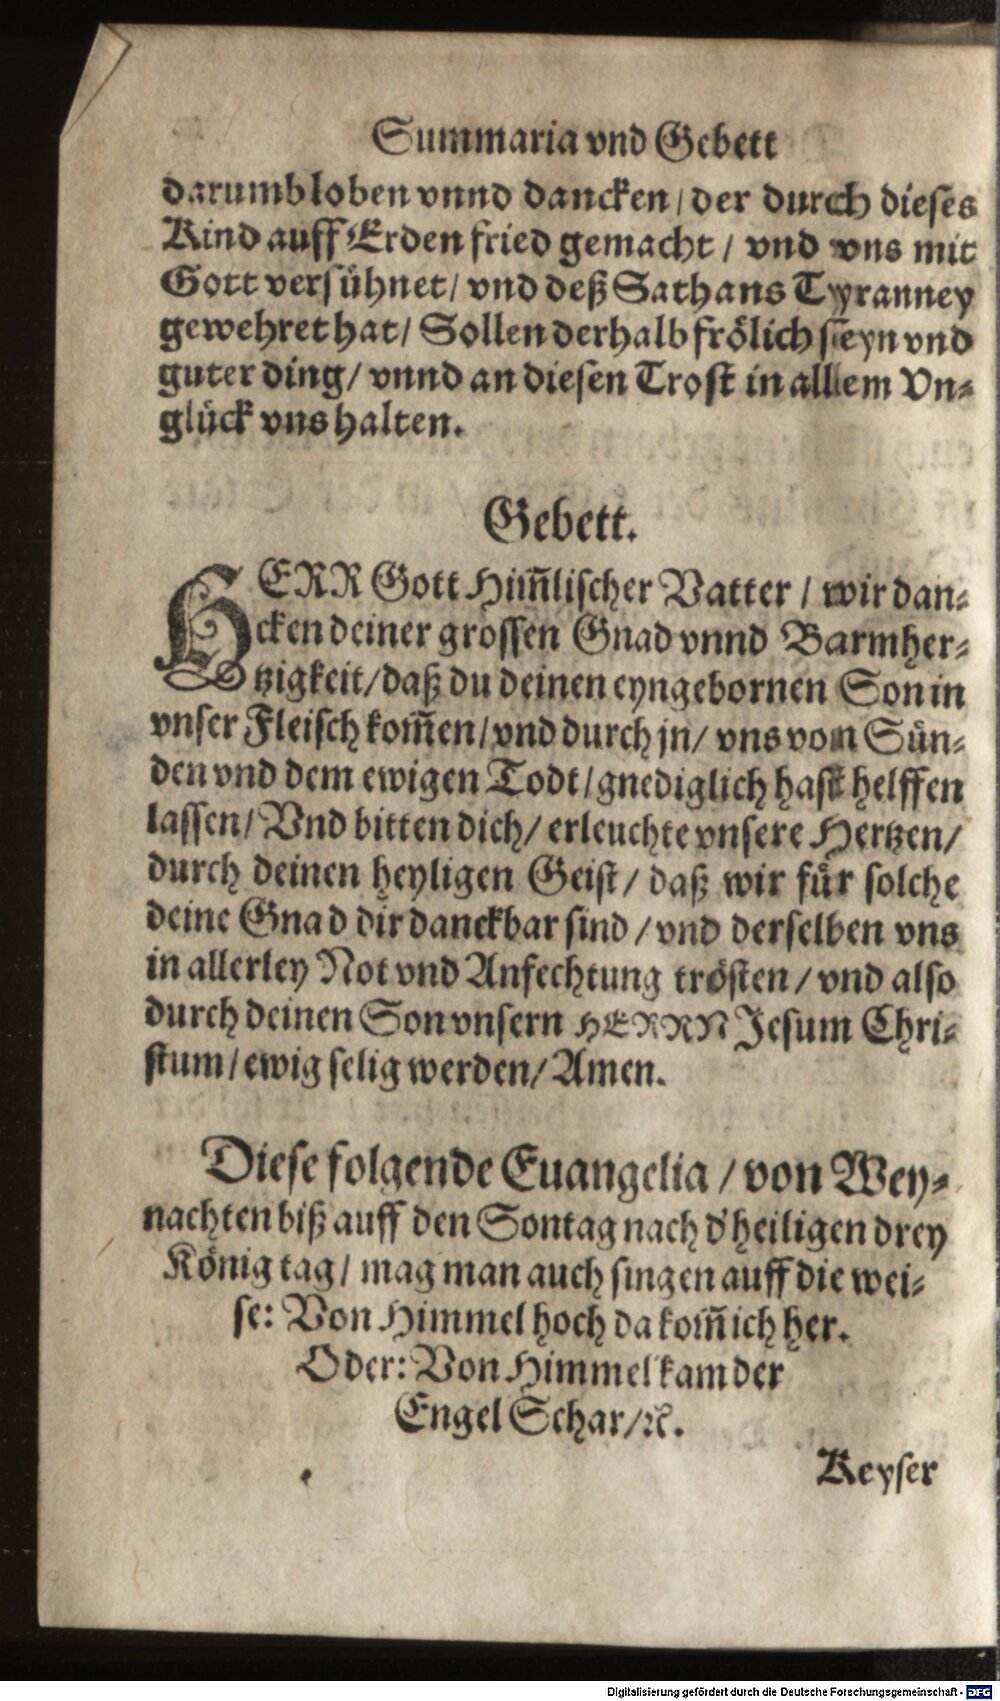 Summaria vnd Gebett
darumb loben vnnd dancken / der durch dieses
Kind auff Erden fried gemacht / vnd vns mit
Gott versühnet / vnd deß Sathans Tyranney
gewehret hat / Sollen derhalb frölich seyn vnd
guter ding / vnnd an diesen Trost in allem Vn⸗
glück vns halten.
Gebett.
HERR Gott Him̄lischer Vatter / wir dan⸗
cken deiner grossen Gnad vnnd Barmher⸗
tzigkeit / daß du deinen eyngebornen Son in
vnser Fleisch kom̄en / vnd durch jn / vns von Sün⸗
den vnd dem ewigen Todt / gnediglich hast helffen
lassen / Vnd bitten dich / erleuchte vnsere Hertzen /
durch deinen heyligen Geist / daß wir für solche
deine Gnad dir danckbar sind / vnd derselben vns
in allerley Not vnd Anfechtung trösten / vnd also
durch deinen Son vnsern HERRN Jesum Chri⸗
stum / ewig selig werden / Amen.
Diese folgende Euangelia / von Wey⸗
nachten biß auff den Sontag nach d' heiligen drey
König tag / mag man auch singen auff die wei⸗
se: Von Himmel hoch da kom̄ ich her.
Oder: Von Himmel kam der
Engel Schar / ꝛc.
Keyser
Digitalisierung gefördert durch die Deutsche Forschungsgemeinschaft - DFG